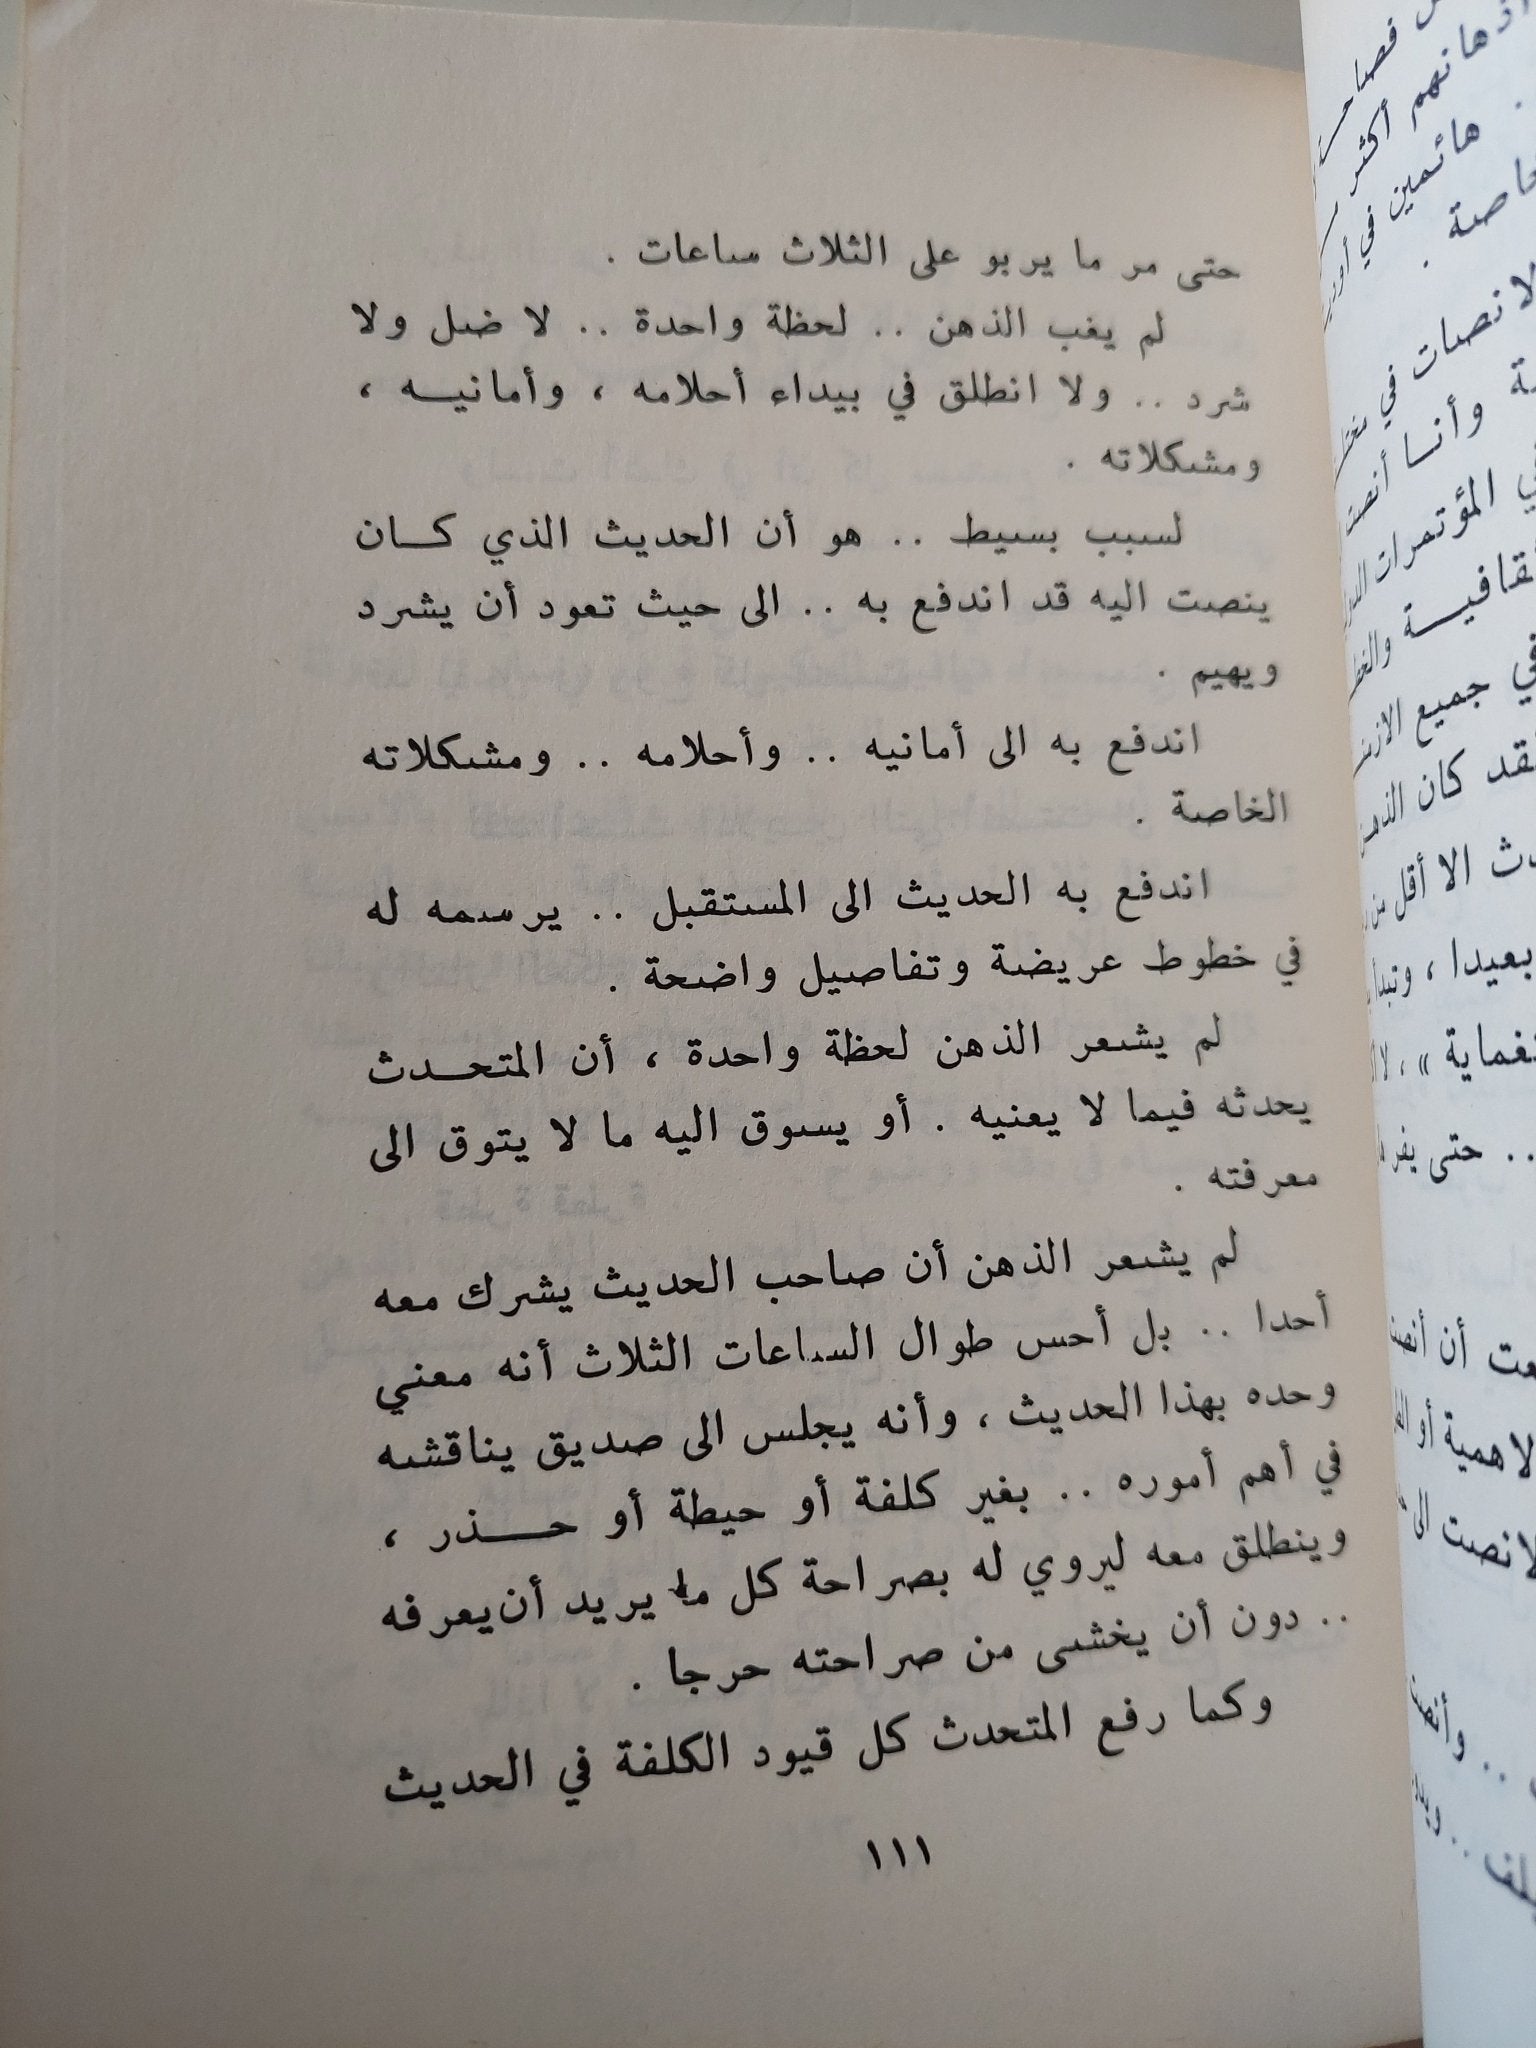 حتى مر ما يربو على الثلاث ساعات .
لم يغب الذهن .. لحظة واحدة .. لا ضل ولا
شرد .. ولا انطلق في بيداء أحلامه ، وأمانيـــه ،
ومشكلاته .
لسبب بسيط .. هو أن الحديث الذي كـــان
ينصت اليه قد اندفع به .. الى حيث تعود أن يشرد
ويهيم .
اندفع به الى أمانيه .. وأحلامه .. ومشكلاته
الخاصة .
اندفع به الحديث الى المستقبل .. يرسمه له
في خطوط عريضة وتفاصيل واضحة .
لم يشعر الذهن لحظة واحدة ، أن المتحـــدث
يحدثه فيما لا يعنيه . أو يسوق اليه ما لا يتوق الى
معرفته .
لم يشعر الذهن أن صاحب الحديث يشرك معه
أحدا .. بل أحس طوال الساعات الثلاث أنه معني
وحده بهذا الحديث ، وأنه يجلس الى صديق يناقشه
في أهم أموره .. بغير كلفة أو حيطة أو حـــــذر ،
وينطلق معه ليروي له بصراحة كل ما يريد أن يعرفه
.. دون أن يخشى من صراحته حرجا .
وكما رفع المتحدث كل قيود الكلفة في الحديث
١١١
فصاحـة
أذهانهم أكثر
هائمين في
خاصة .
في
وأنـا أنصت
المؤتمرات
والخط
في جميع
كان الذهن
الا أقل من
بعيدا ، وتبدأ
.. حتى
أن
أو
الى